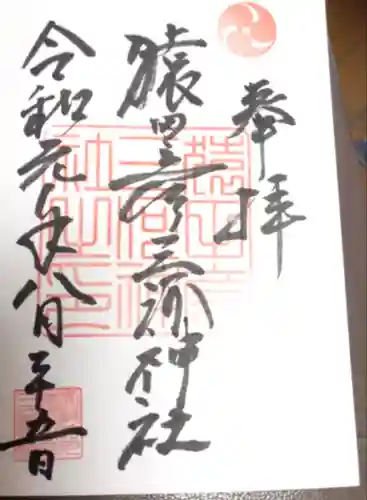 奉拝
猿田彦三河神社
令和元年八月二十五日